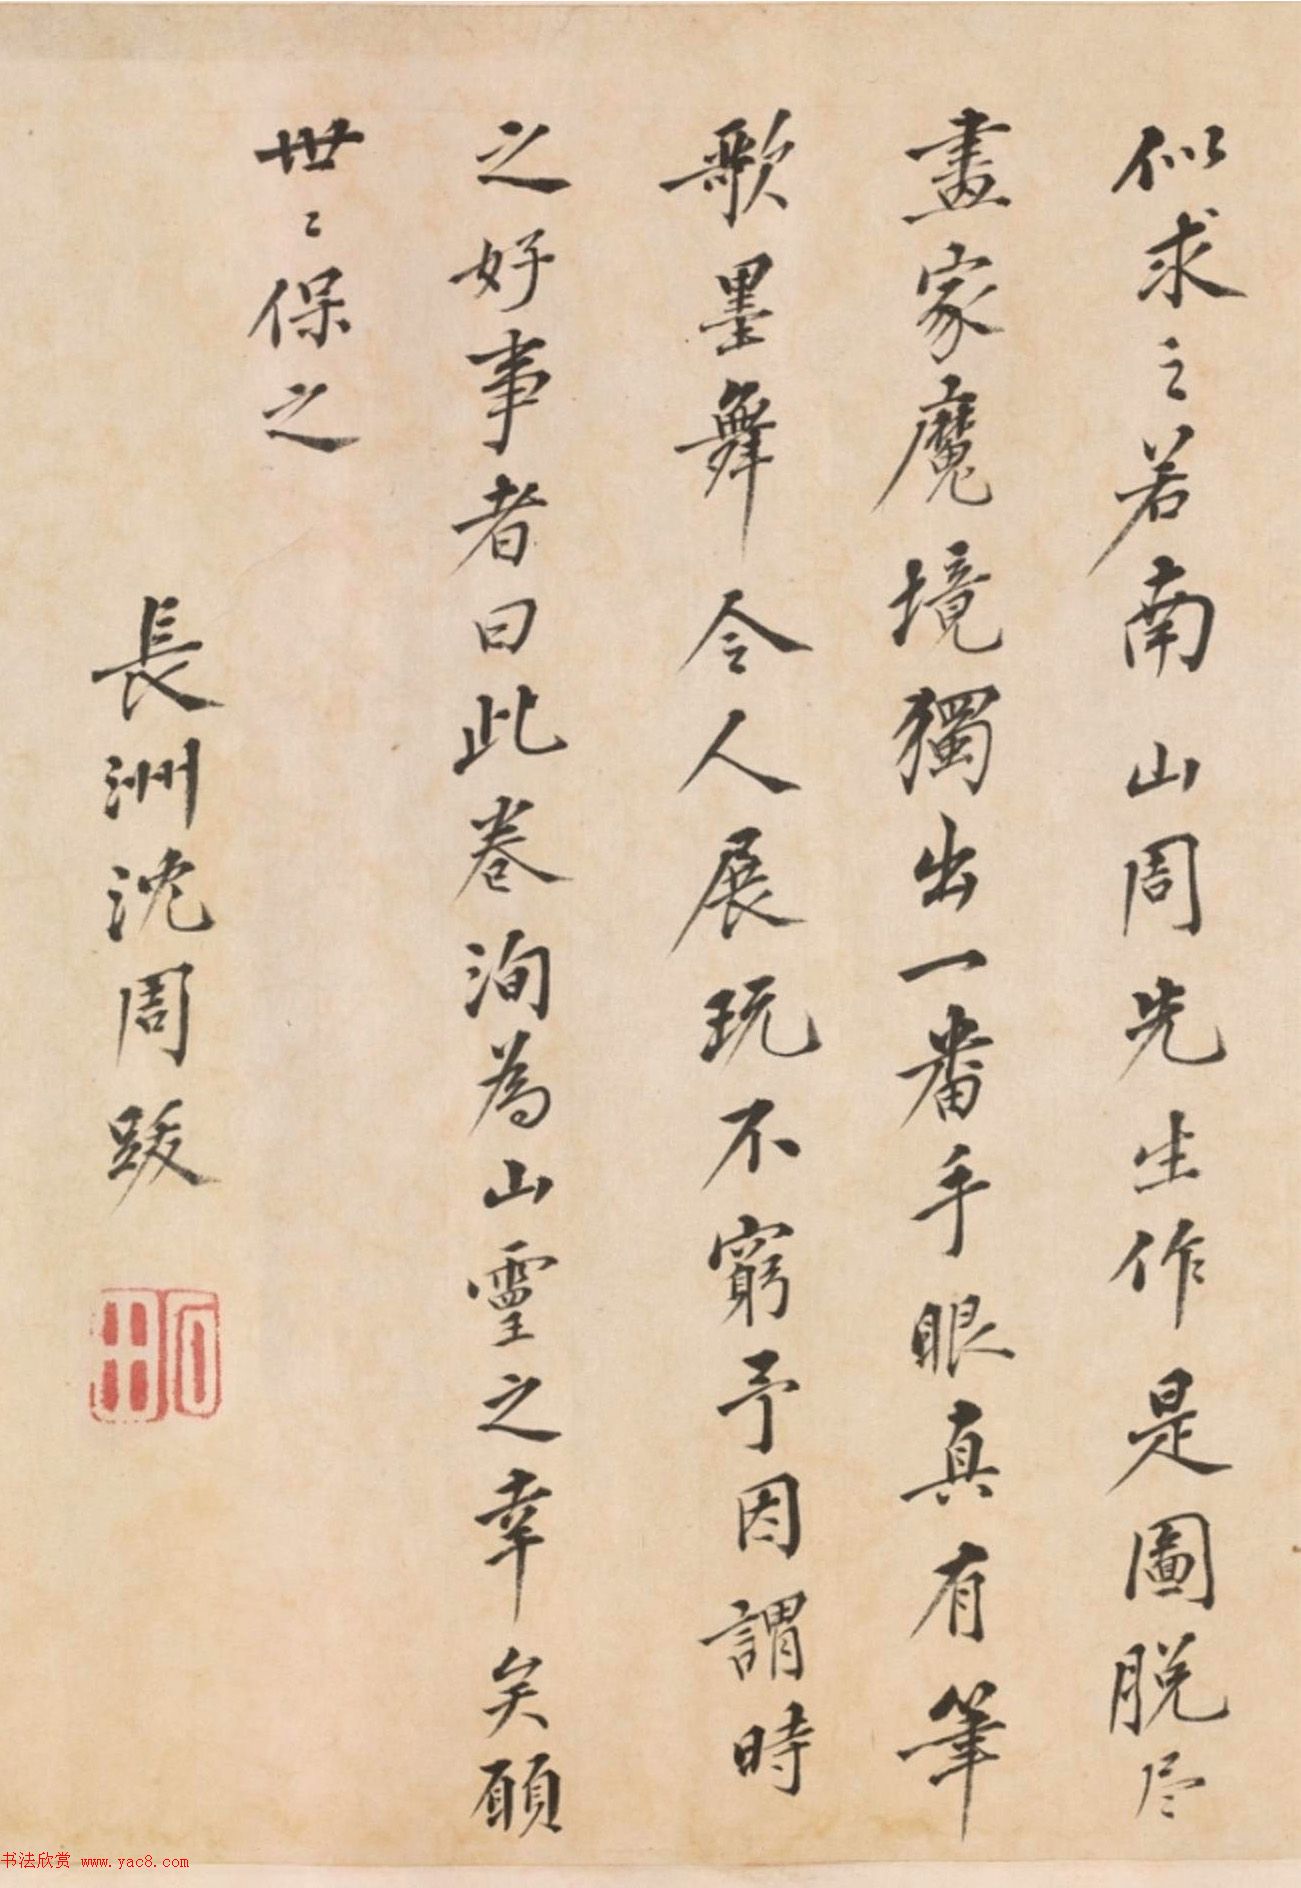 似求之若南山周先生作是圖脱尽
畫家魔境獨出一番手眼真有筆
歌墨舞令人展玩不窮予因謂時
之好事者曰此卷洵為山靈之幸矣願
世〻保之
長洲沈周跋
石田
书法欣赏 www.yac8.com